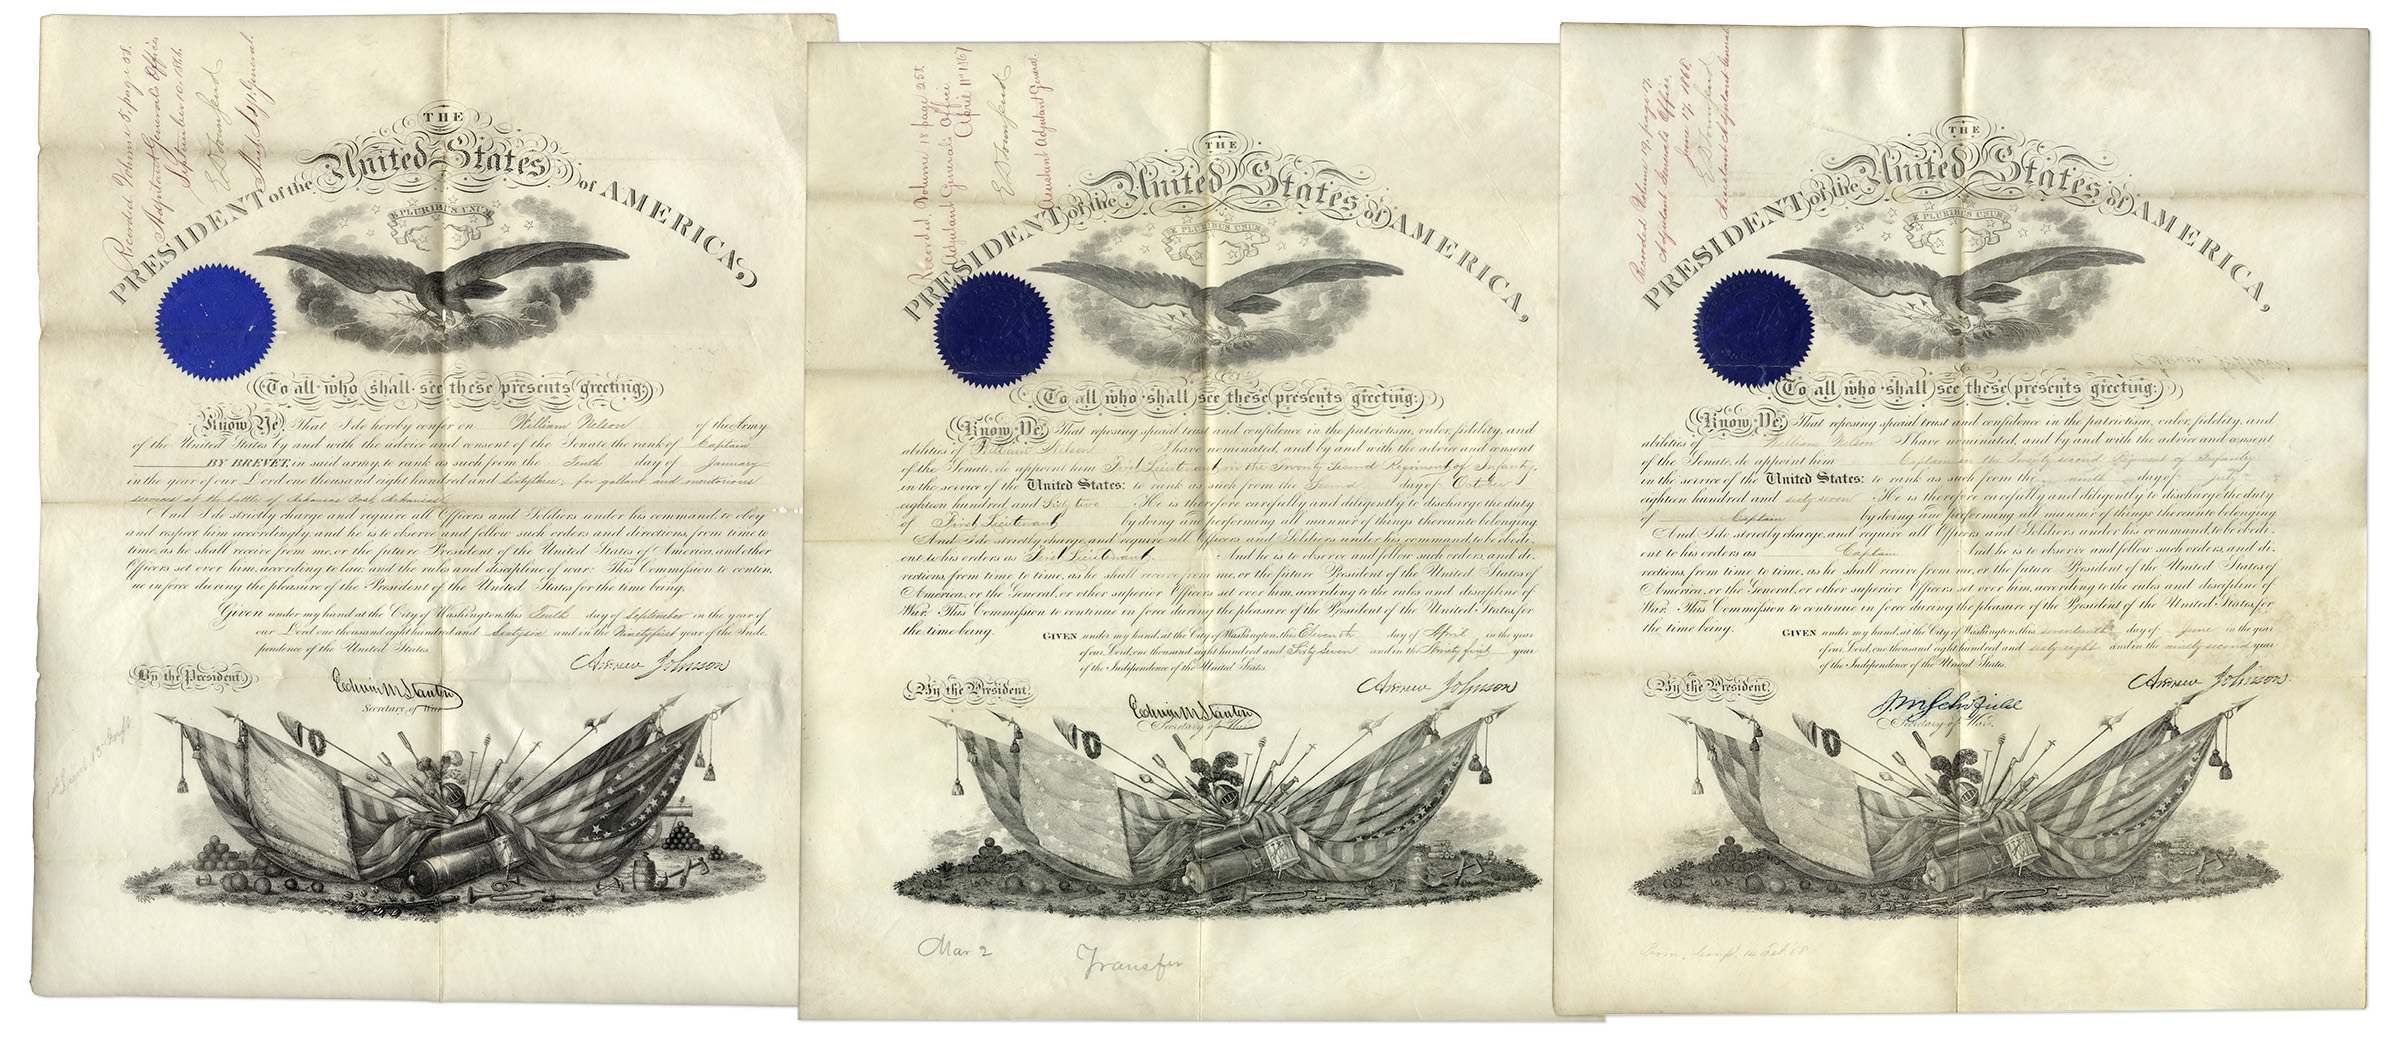 Recorded Volume 5, page 58.
Adjutant General's Office
September 10. 1866.
E D Townsend
Asst Adjt. General.
THE
PRESIDENT of the United States of AMERICA,
E PLURIBUS UNUM
To all who shall see these presents greeting:
Know Ye, That I do hereby confer on William Nelson of the Army
of the United States, by and with the advice and consent of the Senate, the rank of Captain
BY BREVET, in said army, to rank as such from the Tenth day of January
in the year of our Lord one thousand eight hundred and sixty three, for gallant and meritorious
services at the battle of Arkansas Post, Arkansas.
And I do strictly charge and require all Officers and Soldiers under his command, to obey
and respect him accordingly, and he is to observe and follow such orders and directions, from time to
time, as he shall receive from me, or the future President of the United States of America, and other
Officers set over him, according to law, and the rules and discipline of war. This Commission to contin-
ue in force during the pleasure of the President of the United States for the time being.
Given under my hand at the City of Washington, this Tenth day of September in the year of
our Lord one thousand eight hundred and Sixty six and in the Ninety first year of the Inde-
pendence of the United States.
Andrew Johnson
By the President,
Edwin M Stanton
Secretary of War
Recorded, Volume 18 page 258
Adjutant General's Office
April 11th 1867
E D Townsend
Assistant Adjutant General.
THE
PRESIDENT of the United States of AMERICA,
E PLURIBUS UNUM
To all who shall see these presents greeting:
Know Ye, That reposing special trust and confidence in the patriotism, valor, fidelity, and
abilities of William Nelson I have nominated, and by and with the advice and consent
of the Senate, do appoint him First Lieutenant in the Twenty Second Regiment of Infantry,
in the service of the United States: to rank as such from the Second day of October
eighteen hundred and Sixty two. He is therefore carefully and diligently to discharge the duty
of First Lieutenant by doing and performing all manner of things thereunto belonging.
And I do strictly charge, and require all Officers and Soldiers under his command, to be obedi-
ent to his orders as First Lieutenant. And he is to observe and follow such orders, and di-
rections, from time to time, as he shall receive from me, or the future President of the United States of
America, or the General, or other superior Officers set over him, according to the rules and discipline of
War. This Commission to continue in force during the pleasure of the President of the United States, for
the time being.
GIVEN under my hand, at the City of Washington, this Eleventh day of April in the year
of our Lord, one thousand eight hundred and Sixty Seven and in the Ninety first year
of the Independence of the United States.
Andrew Johnson
By the President,
Edwin M Stanton
Secretary of War
Mar 2 Transfer
Recorded Volume 19, page 17.
Adjutant General's Office,
June 17, 1868.
E D Townsend
Assistant Adjutant General
THE
PRESIDENT of the United States of AMERICA,
E PLURIBUS UNUM
To all who shall see these presents greeting:
Know Ye, That reposing special trust and confidence in the patriotism, valor, fidelity, and
abilities of William Nelson I have nominated, and by and with the advice and consent
of the Senate, do appoint him Captain in the Twenty second Regiment of Infantry
in the service of the United States: to rank as such from the ninth day of July
eighteen hundred and sixty seven. He is therefore carefully and diligently to discharge the duty
of Captain by doing and performing all manner of things thereunto belonging.
And I do strictly charge, and require all Officers and Soldiers under his command, to be obedi-
ent to his orders as Captain And he is to observe and follow such orders, and di-
rections, from time to time, as he shall receive from me, or the future President of the United States of
America, or the General, or other superior Officers set over him, according to the rules and discipline of
War. This Commission to continue in force during the pleasure of the President of the United States, for
the time being.
GIVEN under my hand, at the City of Washington, this seventeenth day of June in the year
of our Lord, one thousand eight hundred and sixty eight and in the ninety second year
of the Independence of the United States.
Andrew Johnson
By the President,
J M Schofield
Secretary of War.